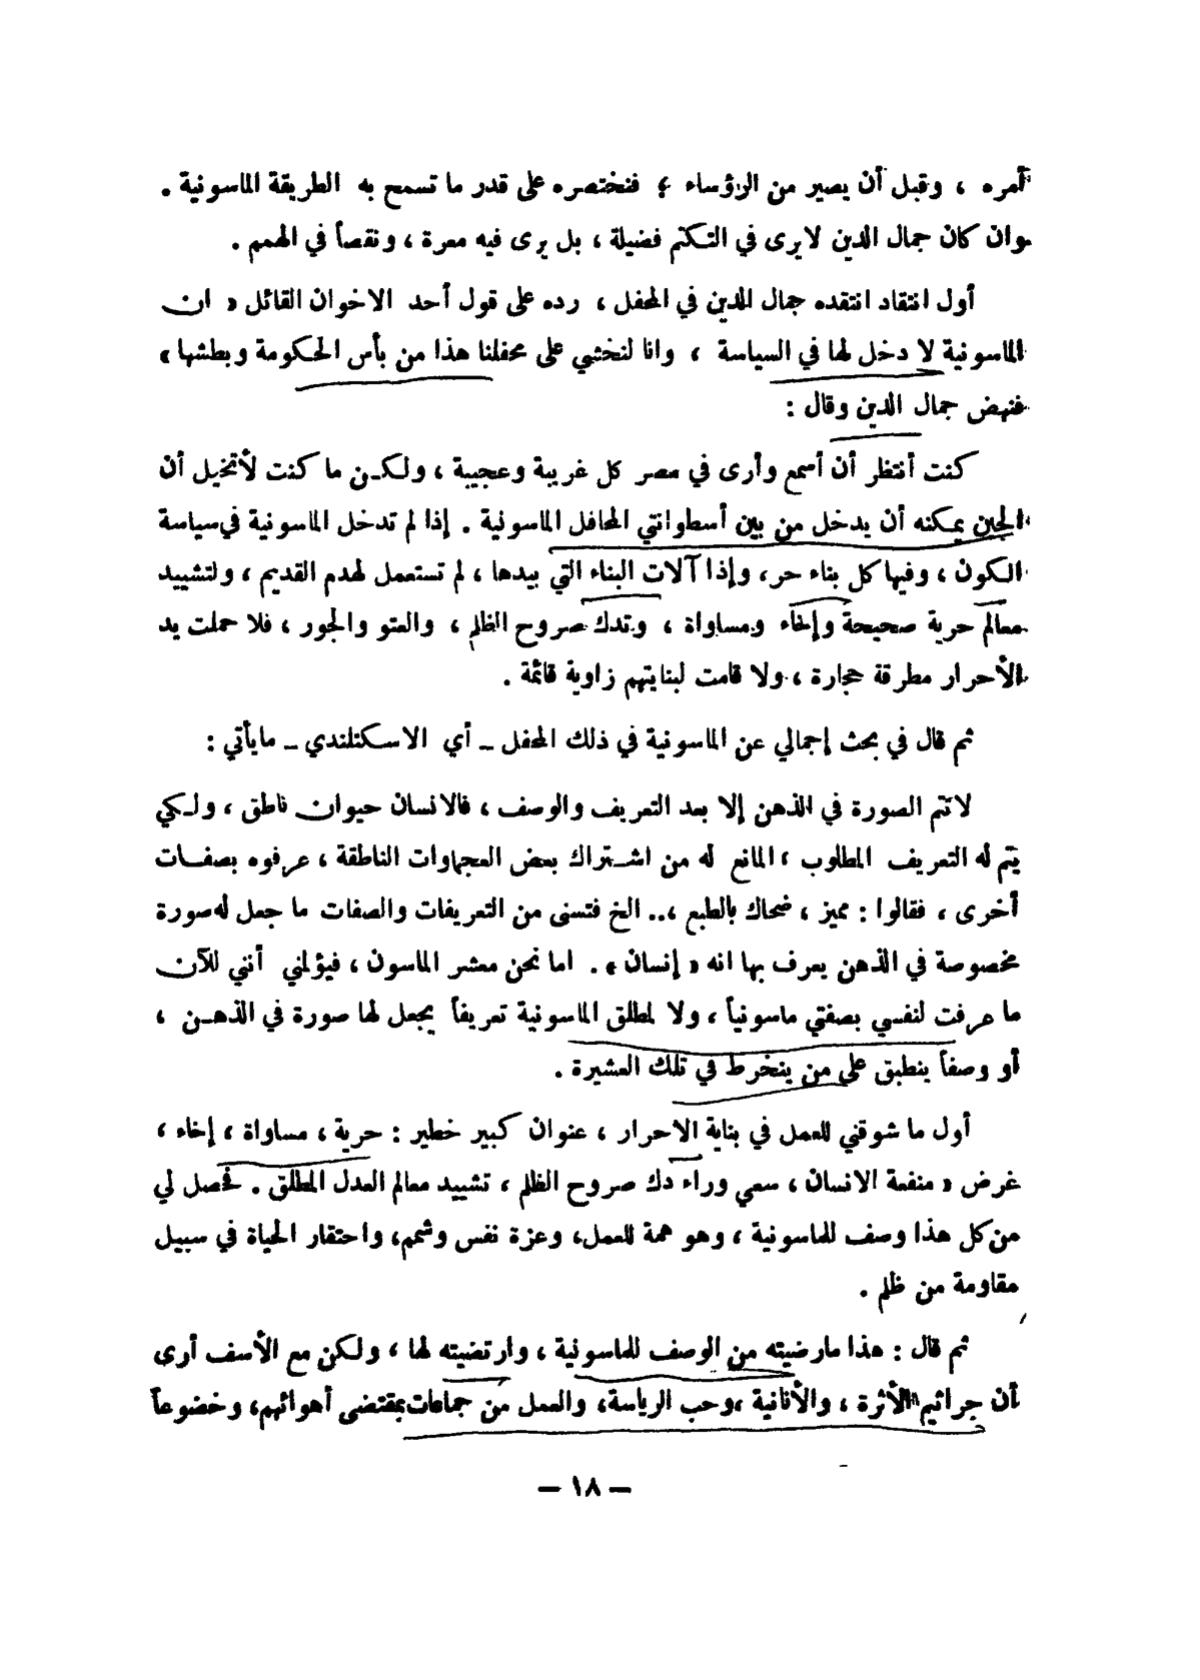 أمره ، وقبل أن يصير من الرؤساء ؛ فنختصره على قدر ما تسمح به الطريقة الماسونية .
وان كان جمال الدين لا يرى في التكتم فضيلة ، بل يرى فيه معرة ، ونقصاً في الهمم .
أول انتقاد انتقده جمال الدين في المحفل ، رده على قول أحد الاخوان القائل « ان
الماسونية لا دخل لها في السياسة ، وانا لنخشى على محفلنا هذا من بأس الحكومة وبطشها »
فنهض جمال الدين وقال :
كنت أنتظر أن أسمع وأرى في مصر كل غريبة وعجيبة ، ولكن ما كنت لأتخيل أن
الجبن يمكنه أن يدخل من بين أسطوانتي المحافل الماسونية . إذا لم تدخل الماسونية في سياسة
الكون ، وفيها كل بناء حر ، وإذا آلات البناء التي بيدها ، لم تستعمل لهدم القديم ، ولتشييد
معالم حرية صحيحة وإخاء ومساواة ، وتدك صروح الظلم ، والعتو والجور ، فلا حملت يد
الأحرار مطرقة حجارة ، ولا قامت لبنايتهم زاوية قائمة .
ثم قال في بحث إجمالي عن الماسونية في ذلك المحفل – أي الاسكتلندي – ما يأتي :
لا تتم الصورة في الذهن إلا بعد التعريف والوصف ، فالانسان حيوان ناطق ، ولكي
يتم له التعريف المطلوب ، المانع له من اشتراك بعض العجماوات الناطقة ، عرفوه بصفات
أخرى ، فقالوا : مميز ، ضحاك بالطبع ،.. الخ فتسنى من التعريفات والصفات ما جعل له صورة
مخصوصة في الذهن يعرف بها انه « إنسان » . اما نحن معشر الماسون ، فيؤلمني أنني للآن
ما عرفت لنفسي بصفتي ماسونياً ، ولا لمطلق الماسونية تعريفاً يجعل لها صورة في الذهن ،
أو وصفاً ينطبق على من ينخرط في تلك العشيرة .
أول ما شوقني للعمل في بناية الاحرار ، عنوان كبير خطير : حرية ، مساواة ، إخاء ،
غرض « منفعة الانسان ، سعي وراء دك صروح الظلم ، تشييد معالم العدل المطلق . فحصل لي
من كل هذا وصف للماسونية ، وهو همة للعمل، وعزة نفس وشمم، واحتقار الحياة في سبيل
مقاومة من ظلم .
ثم قال : هذا ما رضيته من الوصف للماسونية ، وارتضيته لها ، ولكن مع الأسف أرى
أن جراثيم الأثرة ، والأنانية ،وحب الرياسة، والعمل من جماعات بمقتضى أهوائهم، وخضوعاً
– ١٨ –